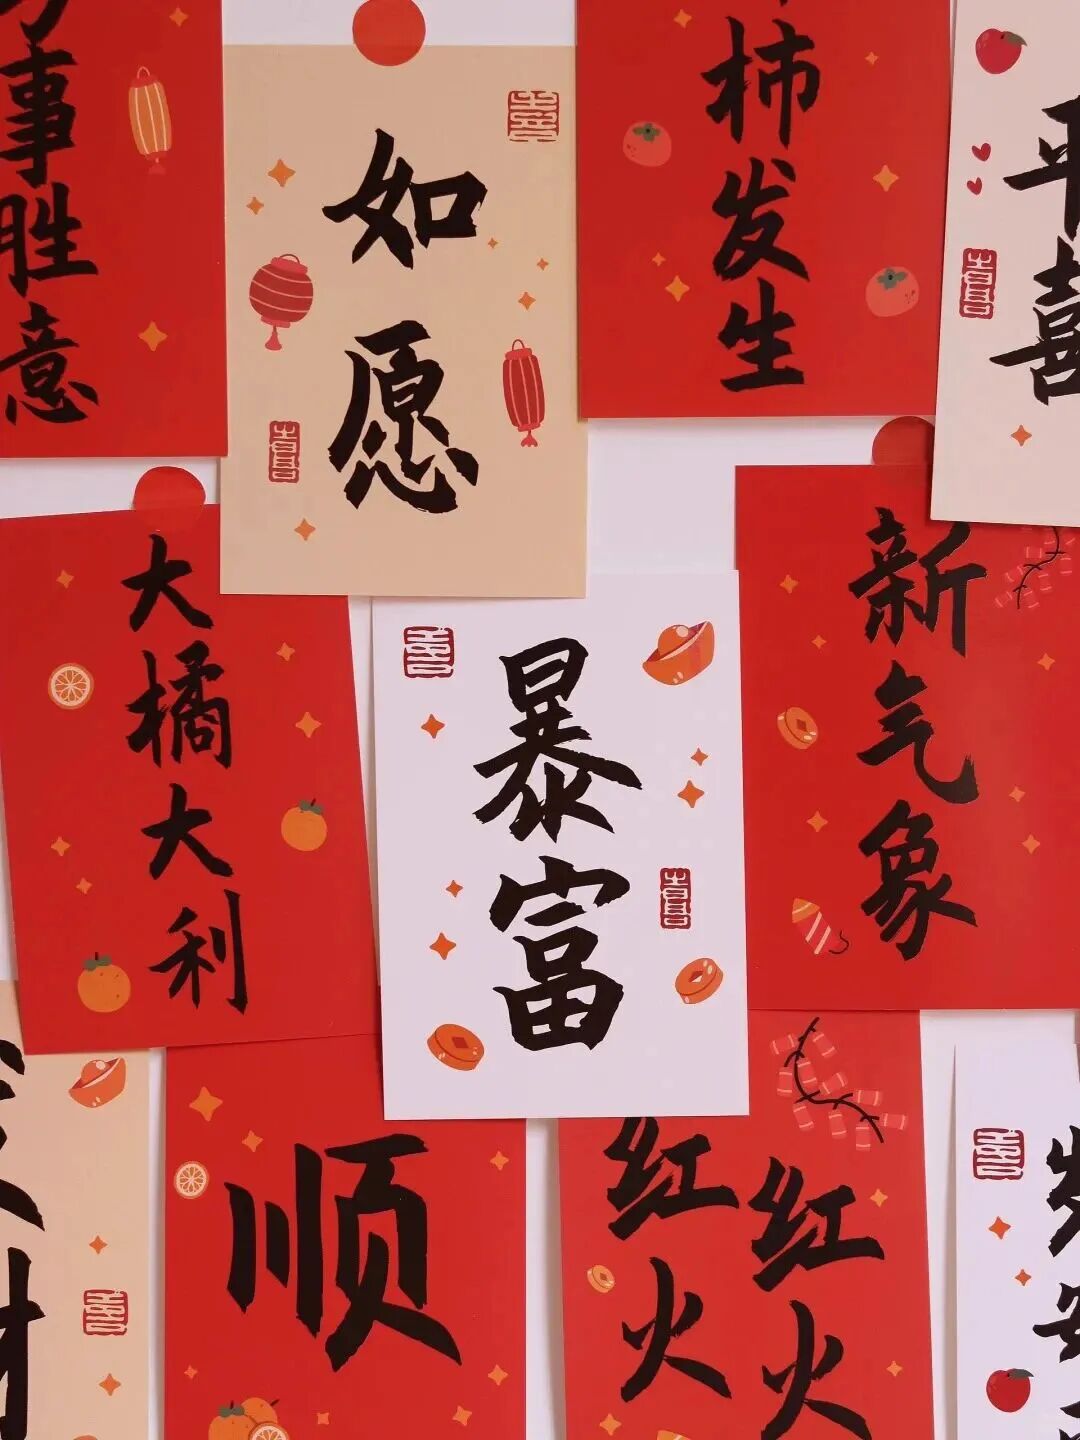 事胜意
如愿
柿发生
平喜
大橘大利
暴富
新气象
财
顺
红红火火
岁安